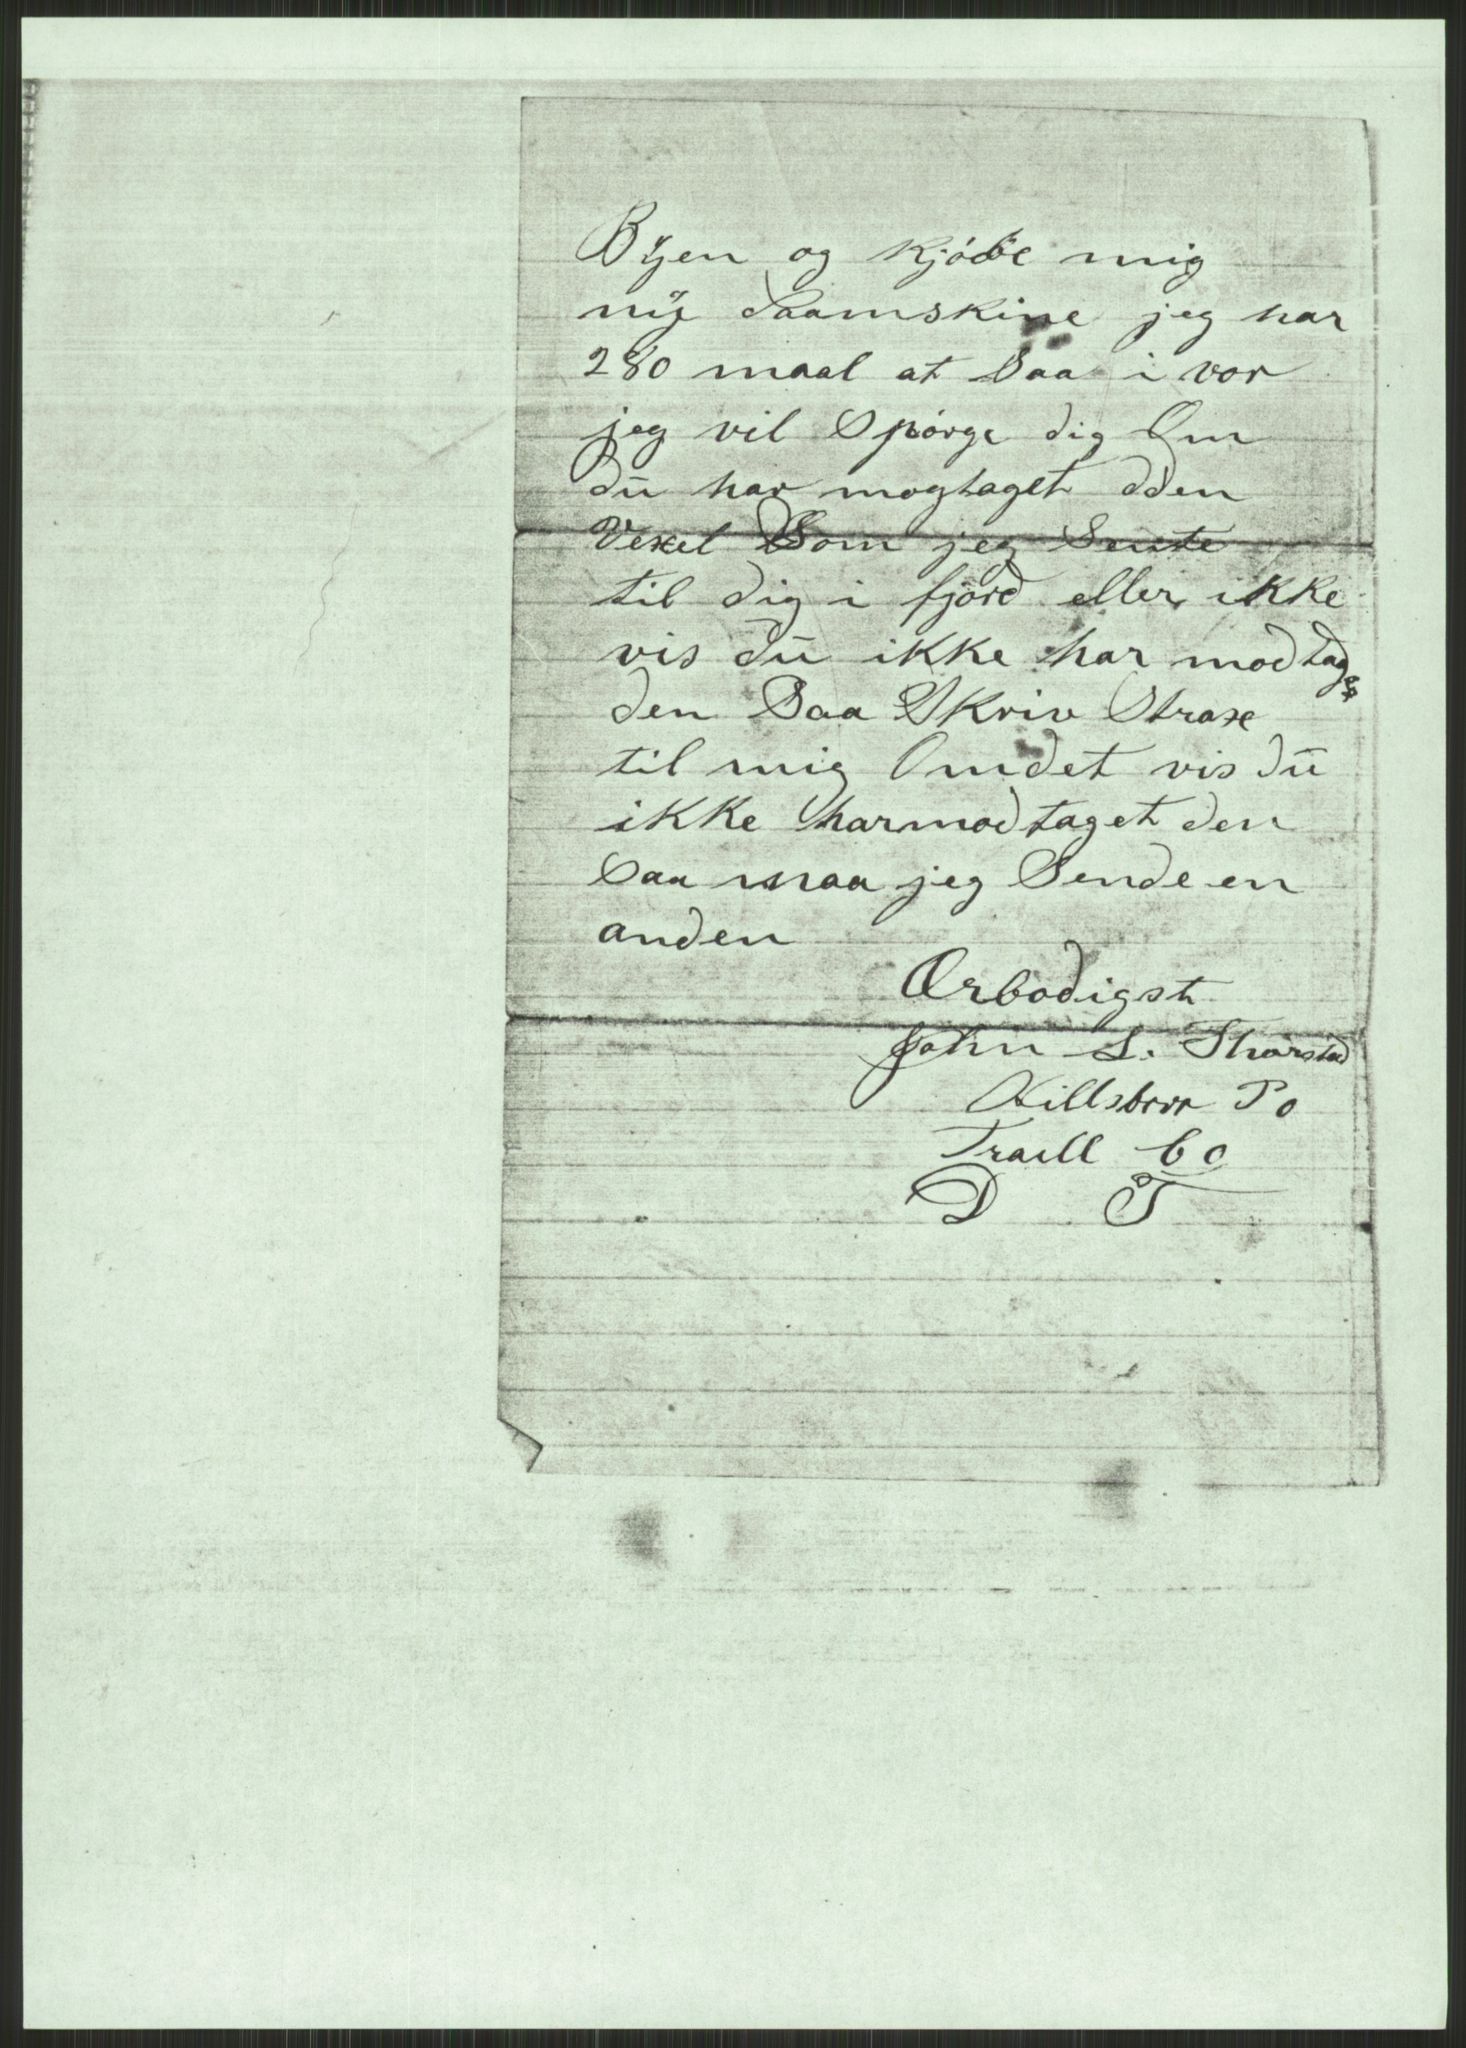 Byen og Kjöbe mig
nÿ Saamskine jeg har
280 maal at Saa i vor
jeg vil Spörge dig Om
du har mogtaget dden
Vexel Som jeg Sente
til dig i fjord eller ikke
vis du ikke har modtaget
den Saa Skriv Strax
til mig Omdet vis du
ikke harmodtaget den
Saa maa jeg Sende en
anden
Ærbodigst
John L. Thorstad
Hillsboro Po
Traill Co
D T